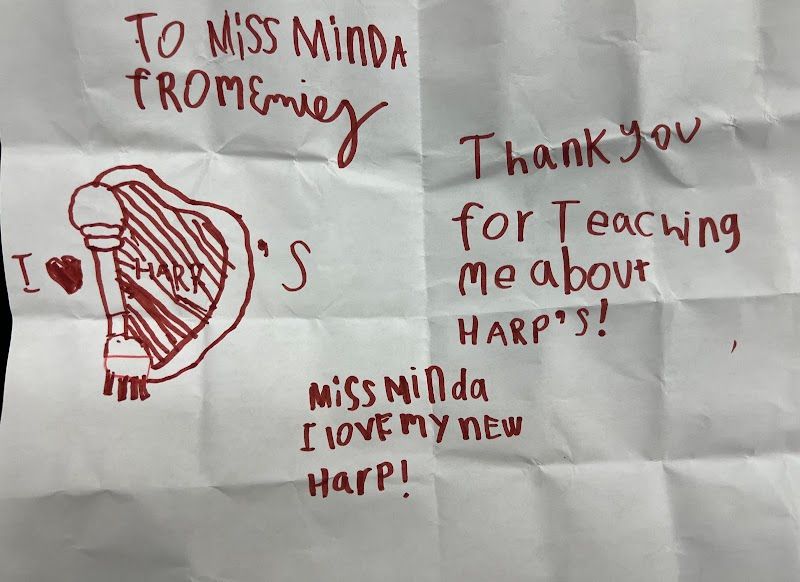 TO MiSS MiNDA
fROM Emiey
I ❤ HARP 'S
Thank you
for Teaching
me about
HARP'S!
Miss Minda
I LOVE MY NEW
HARP!